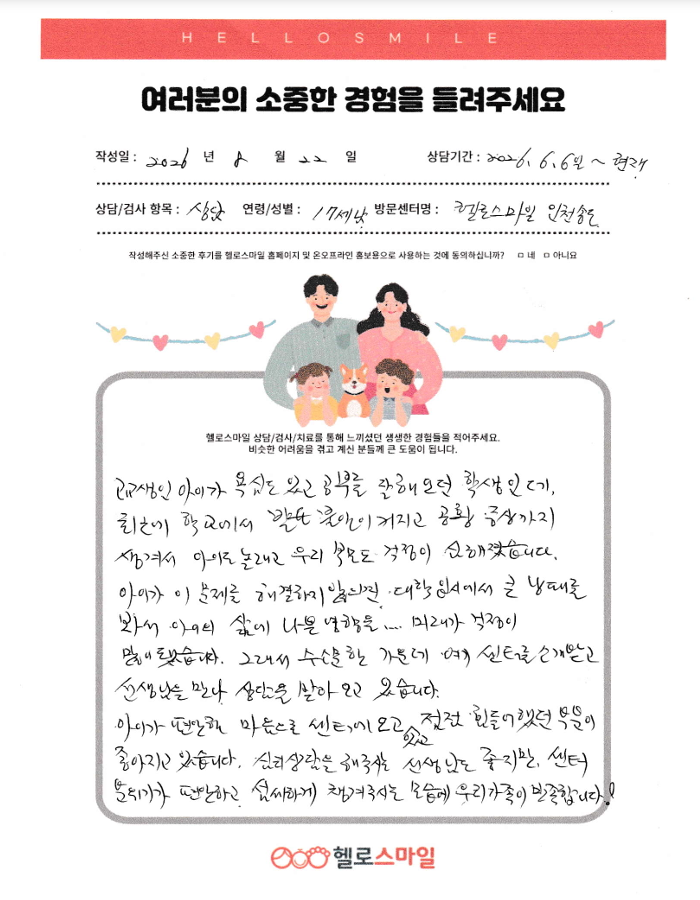 HELLOSMILE
여러분의 소중한 경험을 들려주세요
작성일 : 2026 년 8 월 22 일 상담기간 : 2026. 6. 6일 ~ 현재
상담/검사 항목 : 상담 연령/성별 : 17세 남 방문센터명 : 헬로스마일 인천송도
작성해주신 소중한 후기를 헬로스마일 홈페이지 및 온오프라인 홍보용으로 사용하는 것에 동의하십니까? ㅁ 네 ㅁ 아니요
헬로스마일 상담/검사/치료를 통해 느끼셨던 생생한 경험들을 적어주세요.
비슷한 어려움을 겪고 계신 분들께 큰 도움이 됩니다.
고교생인 아이가 욕심도 있고 공부를 잘해오던 학생인데,
최근에 학교에서 불안이 커지고 공황 증상까지
생겨서 아이도 놀래고 우리 부모도 걱정이 심해졌습니다.
아이가 이 문제를 해결하지 않으면 대학입시에서 큰 낭패를
봐서 아이의 삶에 나쁜 영향을 ... 미래가 걱정이
많이 됐습니다. 그래서 수소문한 가운데 여기 센터를 소개받고
선생님을 만나 상담을 받아 오고 있습니다.
아이가 편안한 마음으로 센터에 오고 있고 점점 힘들어했던 부분이
좋아지고 있습니다. 심리상담을 해주시는 선생님도 좋지만, 센터
분위기가 편안하고 섬세하게 챙겨주시는 모습에 우리가족이 만족합니다!
헬로스마일